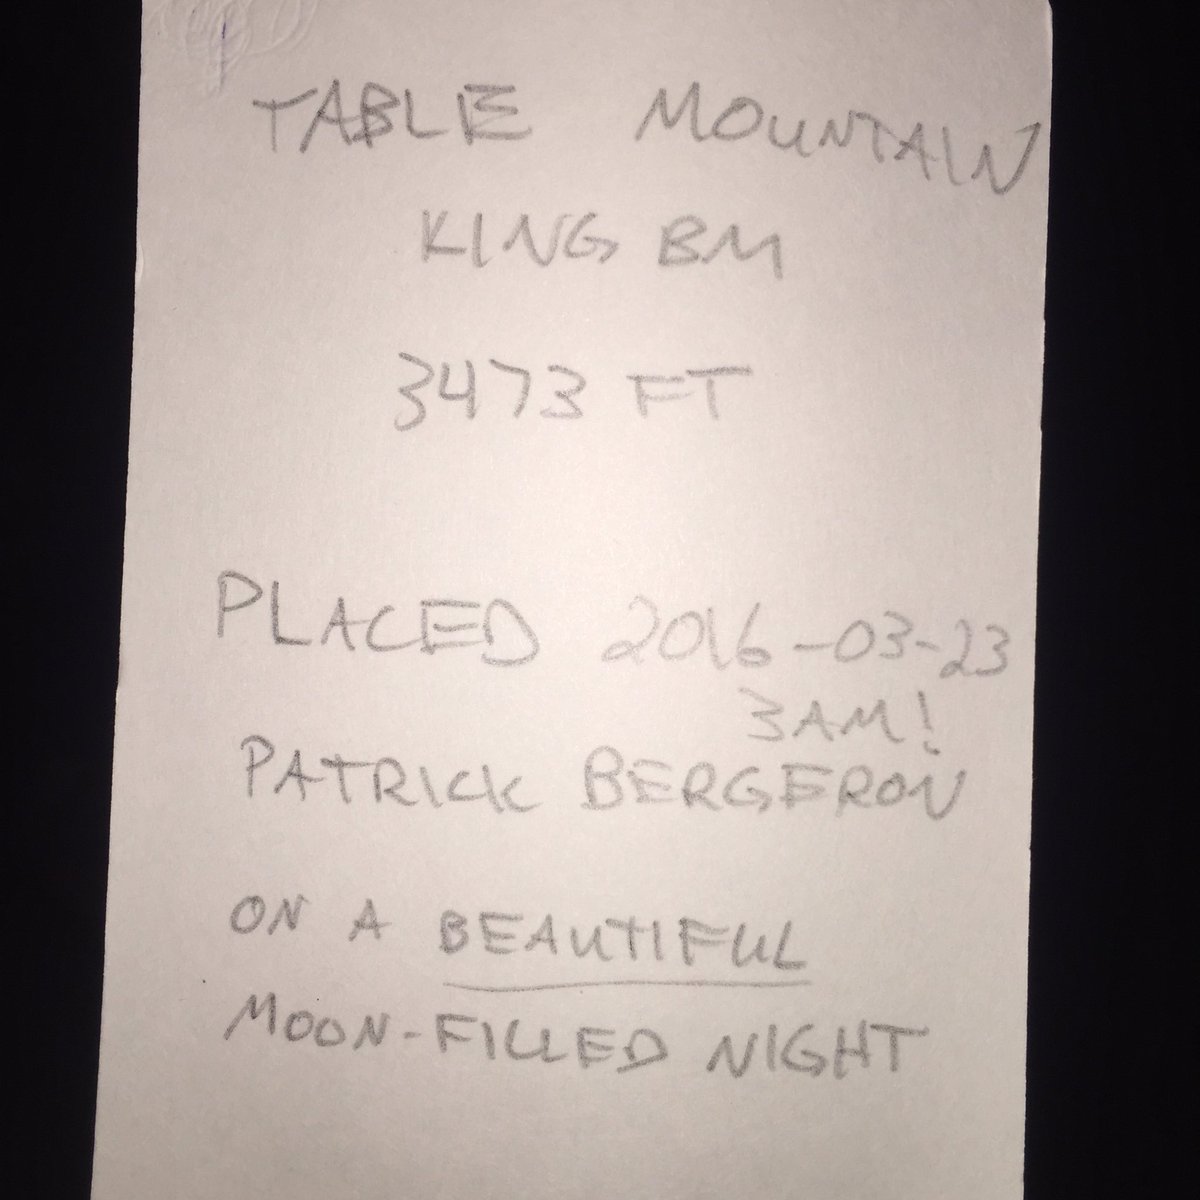 TABLE MOUNTAIN
KING BM
3473 FT
PLACED 2016-03-23
3AM!
PATRICK BERGERON
ON A BEAUTIFUL
MOON-FILLED NIGHT